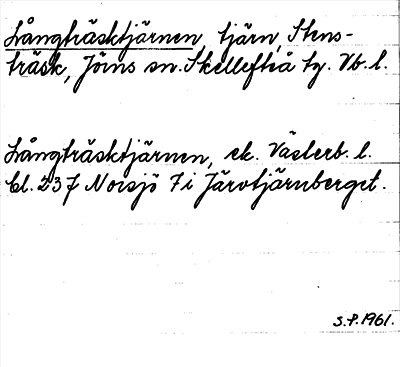 Långträsktjärnen, tjärn, Stens-
träsk, Jörns sn. Skellefteå tg. Vb. l.
Långträsktjärnen, ek. Västerb. l.
bl. 237 Norsjö 7 i Järvtjärnberget.
S.P. 1961.